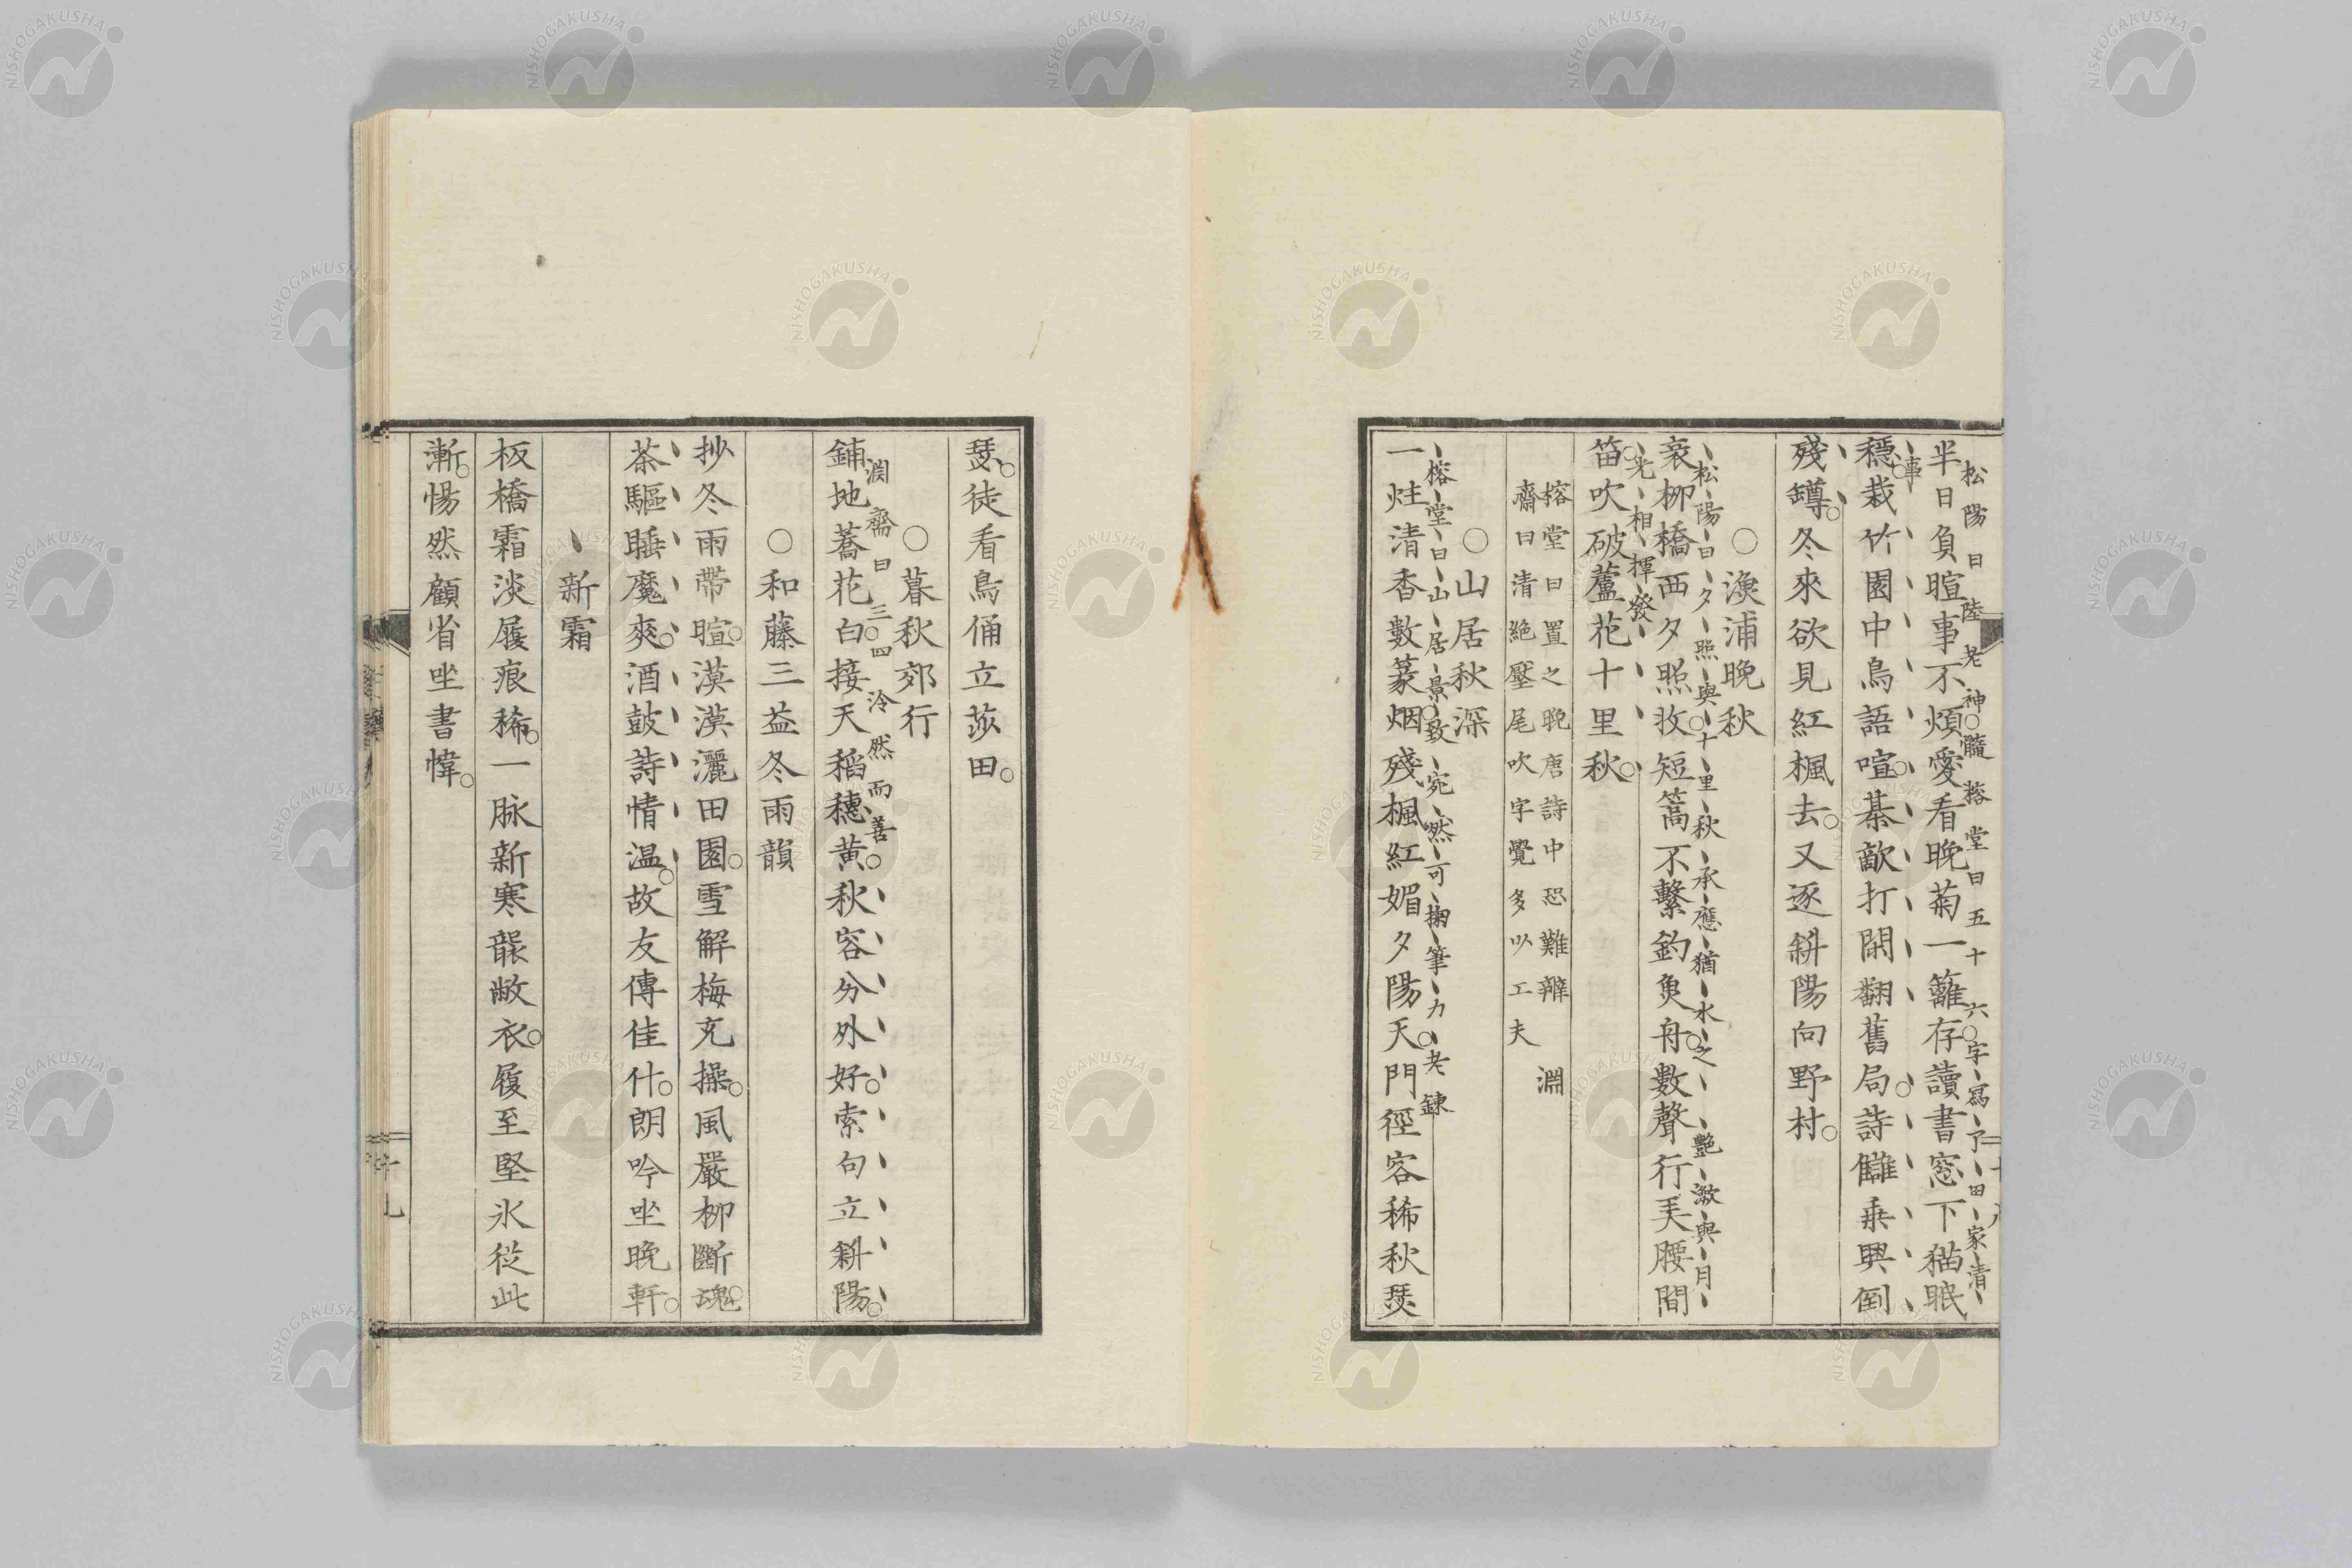 松陽曰陸老神髓榕堂曰五十六字寫了田家清
半日負暄事不煩愛看晚菊一籬存讀書窓下猫眠
事
穩栽竹園中鳥語喧棊敵打閑翻舊局詩讎乗興倒
殘罇冬來欲見紅楓去又逐斜陽向野村
○漁浦晚秋
松陽曰夕照與十里秋承應猶水之艶瀲與月
衰柳橋西夕照收短篙不繫釣魚舟數聲行美腰間
光相揮發
笛吹破蘆花十里秋
榕堂曰置之晚唐詩中恐難辨 淵
齋曰清絶壓尾吹字覺多以工夫
○山居秋深
榕堂曰山居景致宛然可掬筆力老鍊
一炷清香數篆烟殘楓紅媚夕陽天門徑客稀秋瑟
瑟徒看鳥俑立莎田
○暮秋郊行
淵齋曰三四冷然而善
鋪地蕎花白接天稻穗黄秋容分外好索句立斜陽
○和藤三益冬雨韻
抄冬雨帶暄漠漠灑田園雪解梅充操風嚴柳斷魂
茶驅睡魔爽酒鼓詩情温故友傳佳什朗吟坐晚軒
新霜
板橋霜淡屐痕稀一脉新寒襲敝衣履至堅氷從此
漸惕然顧省坐書幃